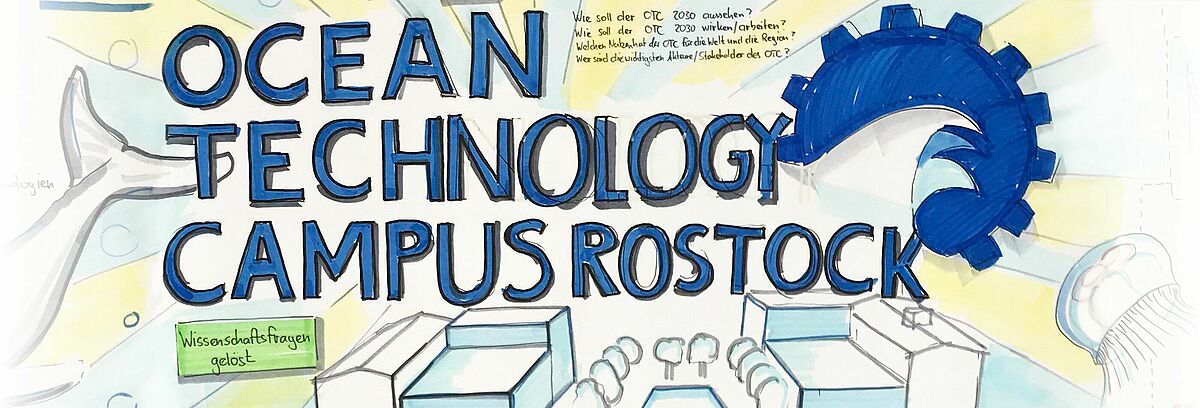 OCEAN
TECHNOLOGY
CAMPUS ROSTOCK
Wie soll der OTC 2030 aussehen?
Wie soll der OTC 2030 wirken/arbeiten?
Welchen Nutzen hat der OTC für die Welt und die Region?
Wer sind die wichtigsten Akteure/Stakeholder des OTC?
nologien
Wissenschaftsfragen
gelöst